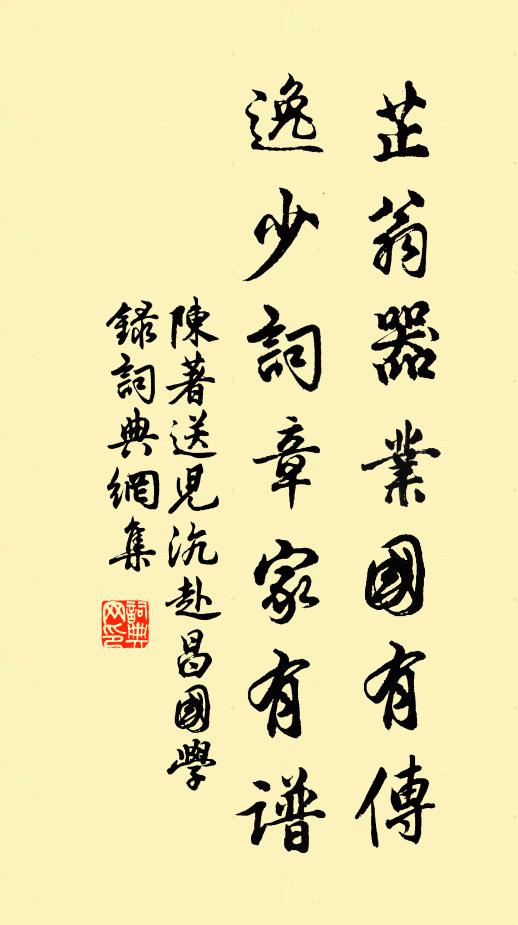 芷翁器業國有傳
逸少詞章家有譜
陳著送兒沆赴昌國學
録詞典網集
詞典网印